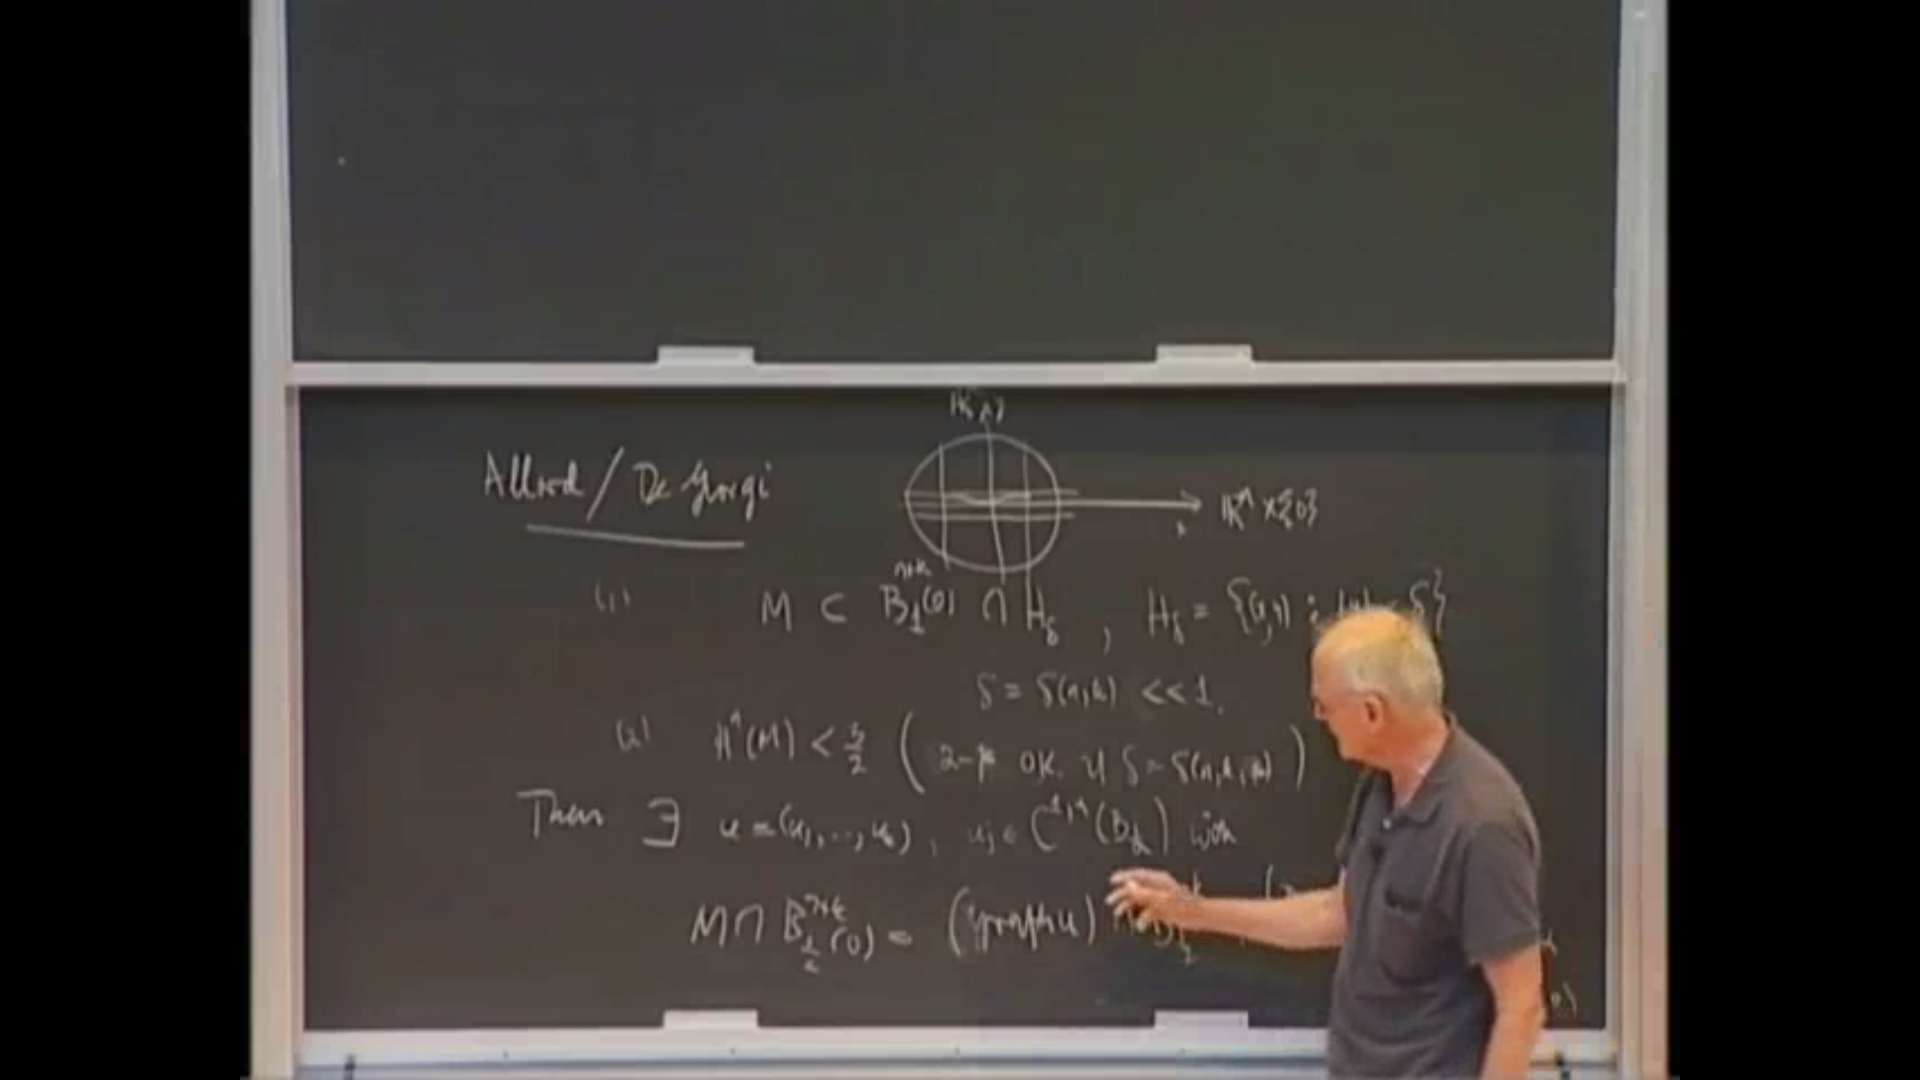 Allard / De Giorgi
ℝⁿ × {0}
(1) M ⊂ B₁ⁿ⁺ᵏ(0) ∩ H_δ , H_δ = {(x,y) :
δ = δ(n,k) << 1.
(2) Hⁿ(M) < 3/2 ( OK if δ = δ(n,k, )
Then ∃ u = (u₁,...,u_k), u_j ∈ C^{1,α}(B_½) with
M ∩ B_½ⁿ⁺ᵏ(0) = (graph u) ∩